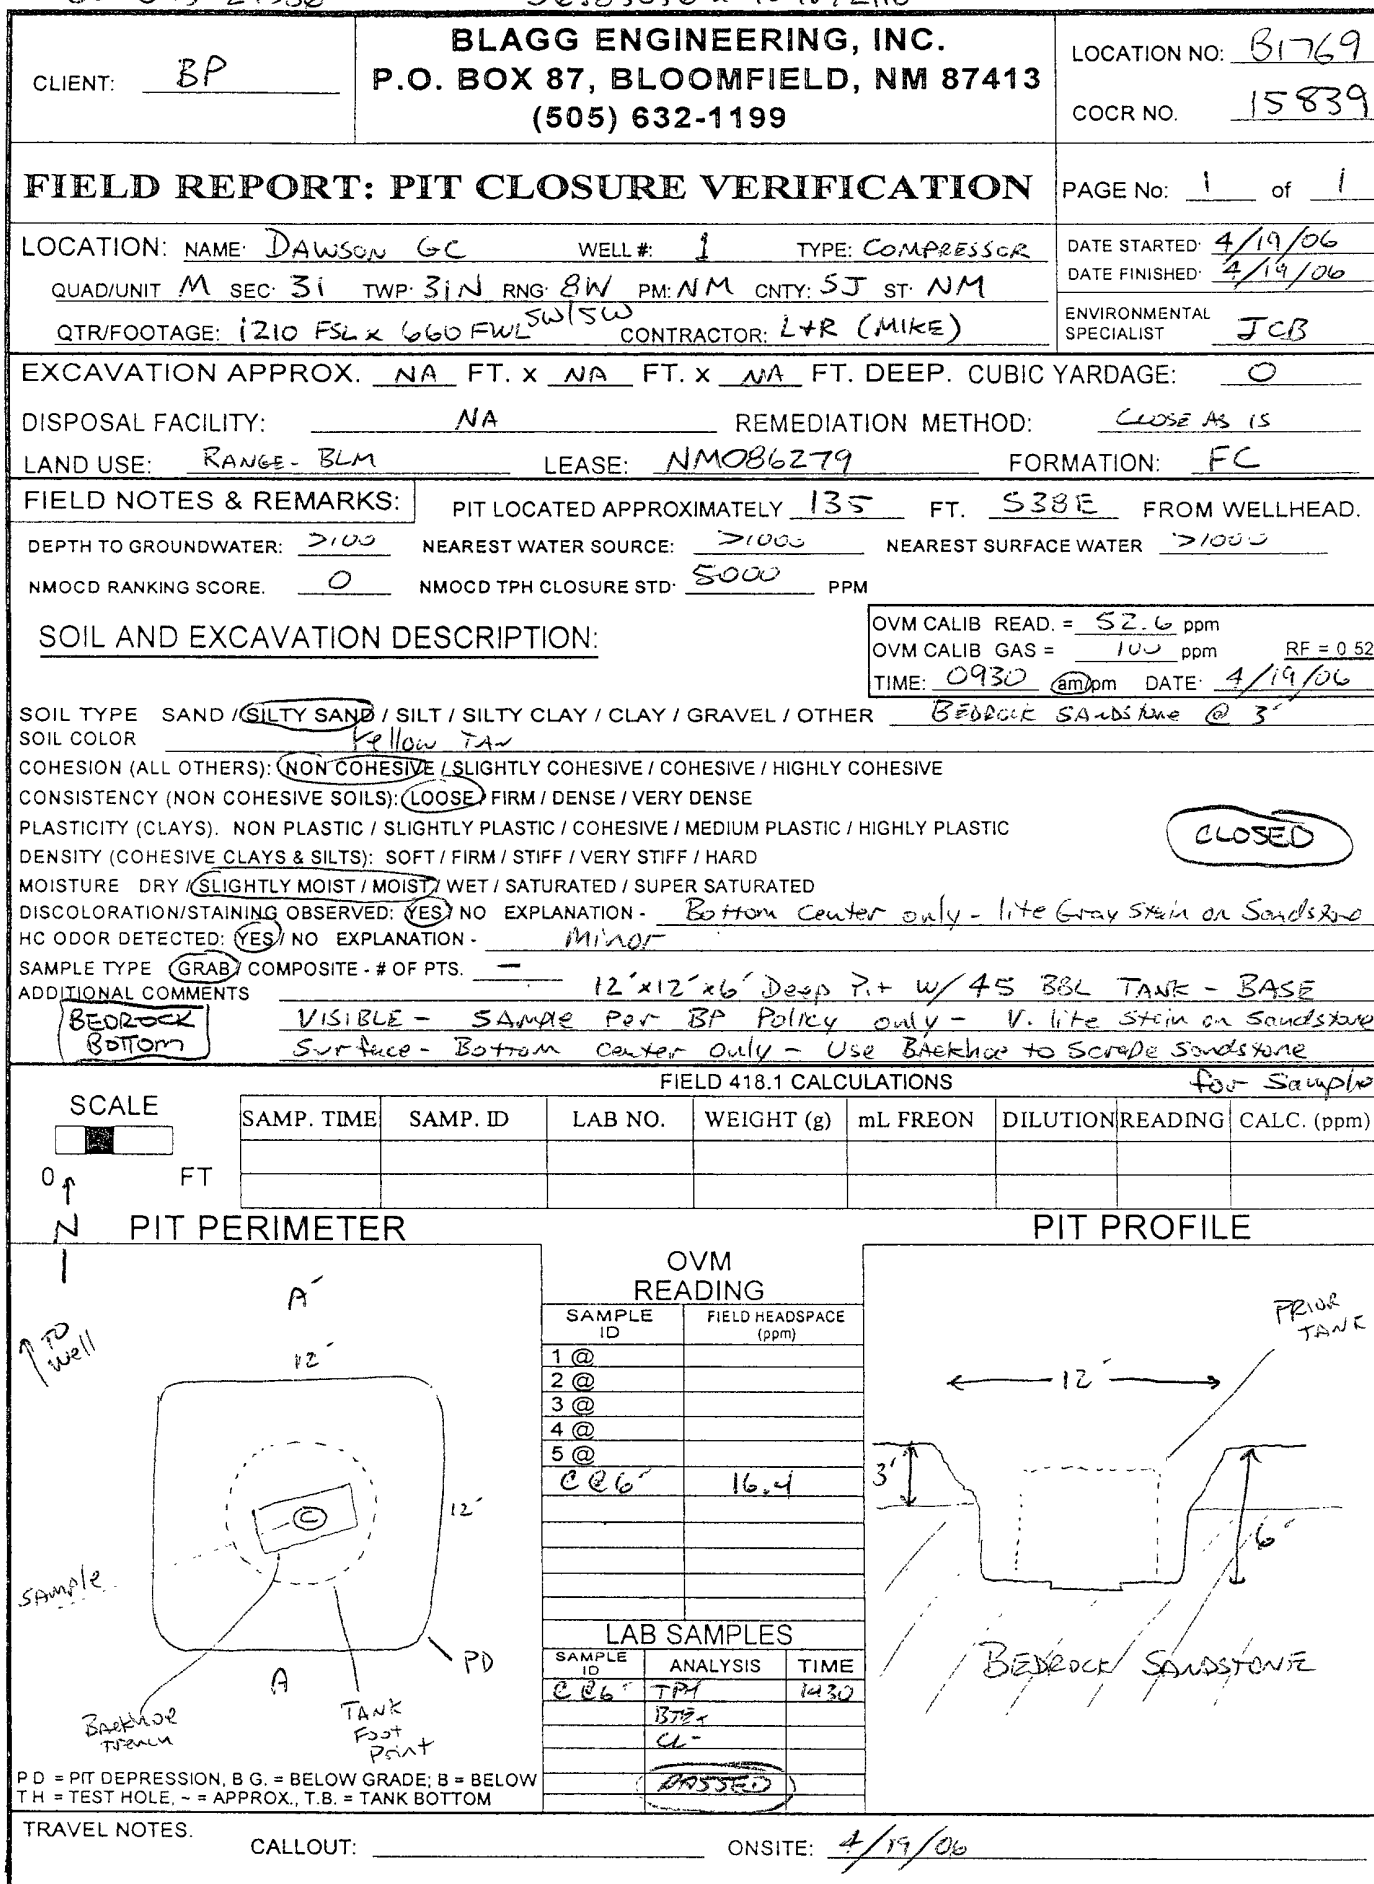 CLIENT: BP
BLAGG ENGINEERING, INC.
P.O. BOX 87, BLOOMFIELD, NM 87413
(505) 632-1199
LOCATION NO: B1769
COCR NO. 15839
FIELD REPORT: PIT CLOSURE VERIFICATION
PAGE No: 1 of 1
LOCATION: NAME: DAWSON GC WELL #: 1 TYPE: COMPRESSOR
QUAD/UNIT M SEC: 31 TWP: 31N RNG: 8W PM: NM CNTY: SJ ST: NM
QTR/FOOTAGE: 1210 FSL x 660 FWL SW/SW CONTRACTOR: L+R (MIKE)
DATE STARTED: 4/19/06
DATE FINISHED: 4/19/06
ENVIRONMENTAL
SPECIALIST JCB
EXCAVATION APPROX. NA FT. x NA FT. x NA FT. DEEP. CUBIC YARDAGE: 0
DISPOSAL FACILITY: NA REMEDIATION METHOD: CLOSE AS IS
LAND USE: RANGE - BLM LEASE: NM086279 FORMATION: FC
FIELD NOTES & REMARKS: PIT LOCATED APPROXIMATELY 135 FT. S38E FROM WELLHEAD.
DEPTH TO GROUNDWATER: >100 NEAREST WATER SOURCE: >1000 NEAREST SURFACE WATER >1000
NMOCD RANKING SCORE. 0 NMOCD TPH CLOSURE STD: 5000 PPM
SOIL AND EXCAVATION DESCRIPTION:
OVM CALIB READ. = 52.6 ppm
OVM CALIB GAS = 100 ppm RF = 0 52
TIME: 0930 am/pm DATE: 4/19/06
SOIL TYPE SAND / SILTY SAND / SILT / SILTY CLAY / CLAY / GRAVEL / OTHER BEDROCK SANDSTONE @ 3'
SOIL COLOR Yellow TAN
COHESION (ALL OTHERS): NON COHESIVE / SLIGHTLY COHESIVE / COHESIVE / HIGHLY COHESIVE
CONSISTENCY (NON COHESIVE SOILS): LOOSE / FIRM / DENSE / VERY DENSE
PLASTICITY (CLAYS). NON PLASTIC / SLIGHTLY PLASTIC / COHESIVE / MEDIUM PLASTIC / HIGHLY PLASTIC
DENSITY (COHESIVE CLAYS & SILTS): SOFT / FIRM / STIFF / VERY STIFF / HARD
CLOSED
MOISTURE DRY / SLIGHTLY MOIST / MOIST / WET / SATURATED / SUPER SATURATED
DISCOLORATION/STAINING OBSERVED: YES / NO EXPLANATION - Bottom Center only - lite Gray Stain on Sandstone
HC ODOR DETECTED: YES / NO EXPLANATION - Minor
SAMPLE TYPE GRAB / COMPOSITE - # OF PTS. —
ADDITIONAL COMMENTS 12'x12'x6' Deep Pit W/ 45 BBL TANK - BASE
VISIBLE - SAMPLE Per BP Policy only - V. lite Stain on Sandstone
Surface - Bottom Center Only - Use Backhoe to Scrape Sandstone
for Sample
BEDROCK
BOTTOM
FIELD 418.1 CALCULATIONS
SCALE
0 FT
SAMP. TIME SAMP. ID LAB NO. WEIGHT (g) mL FREON DILUTION READING CALC. (ppm)
N
PIT PERIMETER
PIT PROFILE
OVM
READING
SAMPLE
ID
FIELD HEADSPACE
(ppm)
1 @
2 @
3 @
4 @
5 @
C @ 6' 16.4
LAB SAMPLES
SAMPLE
ID
ANALYSIS TIME
C @ 6' TPH 1430
BTEX
Cl-
PASSED
A'
TO
Well
12'
12'
C
SAMPLE
PD
A
BACKHOE
TRENCH
TANK
Foot
Print
PRIOR
TANK
12'
3'
6'
BEDROCK SANDSTONE
P D = PIT DEPRESSION, B G. = BELOW GRADE; B = BELOW
T H = TEST HOLE, ~ = APPROX., T.B. = TANK BOTTOM
TRAVEL NOTES.
CALLOUT: ONSITE: 4/19/06